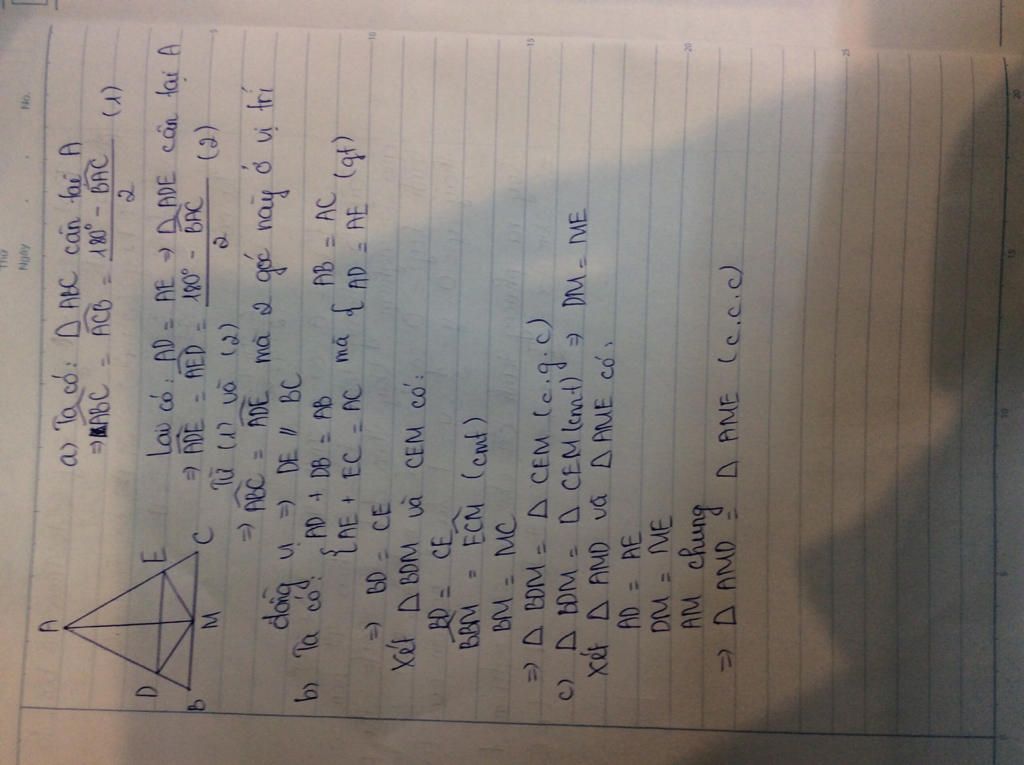 Thứ
Ngày
No.
A
D
E
B
M
C
a) Ta có: Δ ABC cân tại A
=> ABC = ACB = (180° - BAC)/2 (1)
Lại có: AD = AE => Δ ADE cân tại A
=> ADE = AED = (180° - BAC)/2 (2)
Từ (1) và (2)
=> ABC = ADE mà 2 góc này ở vị trí
đồng vị => DE // BC
b) Ta có: { AD + DB = AB mà { AB = AC
{ AE + EC = AC { AD = AE (gt)
=> BD = CE
Xét Δ BDM và CEM có:
BD = CE
BBM = ECM (cmt)
BM = MC
=> Δ BDM = Δ CEM (c.g.c)
c) Δ BDM = Δ CEM (cmt) => DM = ME
Xét Δ AMD và Δ AME có:
AD = AE
DM = ME
AM chung
=> Δ AMD = Δ AME (c.c.c)
5
10
15
20
25
5
10
15
20